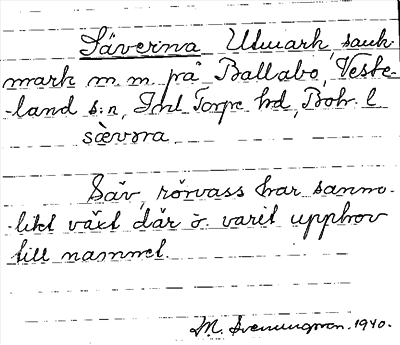 Säverna Utmark, sank-
mark m.m. på Ballabo, Veste-
-land s:n, Inl Torpe hd, Boh. l
sæ̀vɔrna
Säv, rörvass har sanno-
-likt växt där o. varit upphov
till namnet.
M. Svenungsson. 1940.